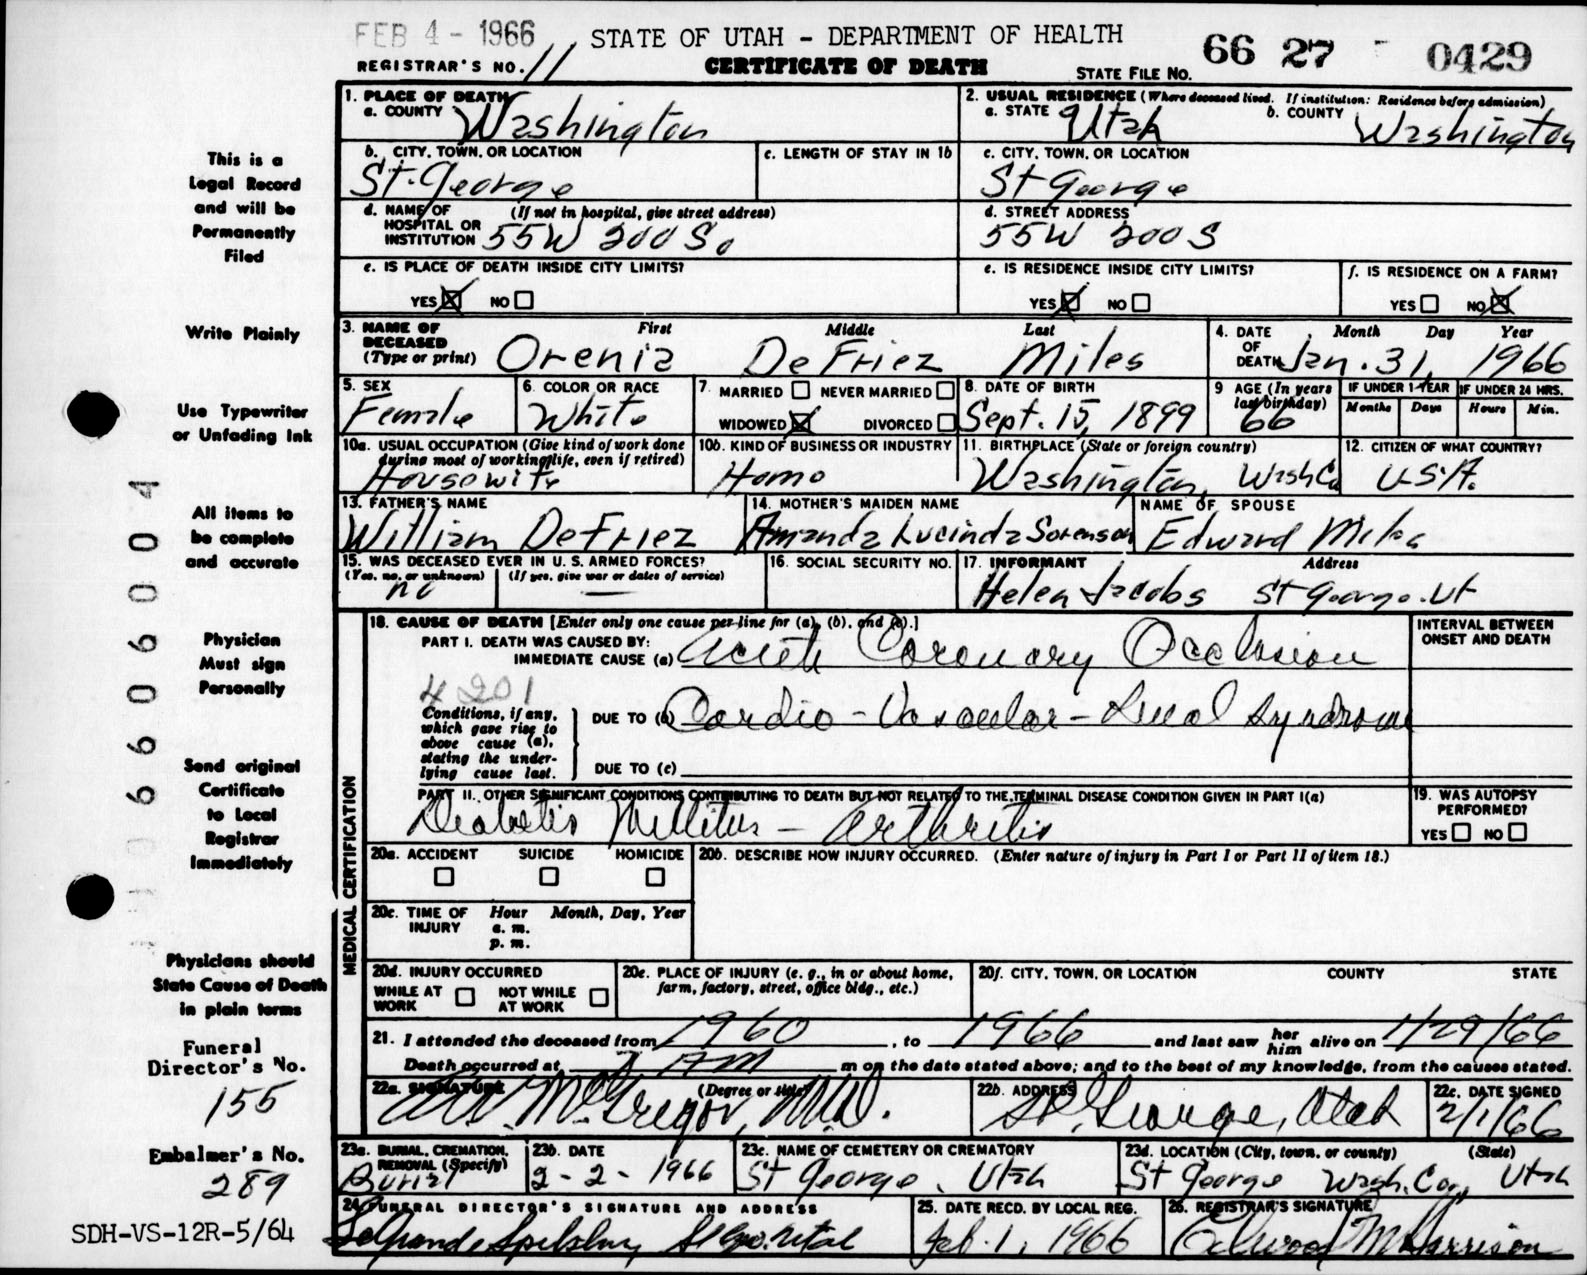 FEB 4 - 1966
STATE OF UTAH - DEPARTMENT OF HEALTH
66 27 0429
REGISTRAR'S NO. 11
CERTIFICATE OF DEATH
STATE FILE NO.
This is a
Legal Record
and will be
Permanently
Filed
Write Plainly
Use Typewriter
or Unfading Ink
All items to
be complete
and accurate
Physician
Must sign
Personally
Send original
Certificate
to Local
Registrar
Immediately
Physicians should
State Cause of Death
in plain terms
Funeral
Director's No.
155
Embalmer's No.
289
SDH-VS-12R-5/64
1. PLACE OF DEATH
a. COUNTY Washington
2. USUAL RESIDENCE (Where deceased lived. If institution: Residence before admission)
a. STATE Utah b. COUNTY Washington
b. CITY, TOWN, OR LOCATION
St. George
c. LENGTH OF STAY IN 1b
c. CITY, TOWN, OR LOCATION
St George
d. NAME OF HOSPITAL OR INSTITUTION (If not in hospital, give street address)
55W 200 So
d. STREET ADDRESS
55W 200 S
e. IS PLACE OF DEATH INSIDE CITY LIMITS?
YES NO
e. IS RESIDENCE INSIDE CITY LIMITS?
YES NO
f. IS RESIDENCE ON A FARM?
YES NO
3. NAME OF DECEASED (Type or print) First Middle Last
Orenia DeFriez Miles
4. DATE OF DEATH Month Day Year
Jan. 31, 1966
5. SEX
Female
6. COLOR OR RACE
White
7. MARRIED NEVER MARRIED
WIDOWED DIVORCED
8. DATE OF BIRTH
Sept. 15, 1899
9 AGE (In years last birthday)
66
IF UNDER 1 YEAR
Months Days
IF UNDER 24 HRS.
Hours Min.
10a. USUAL OCCUPATION (Give kind of work done during most of working life, even if retired)
Housewife
10b. KIND OF BUSINESS OR INDUSTRY
Home
11. BIRTHPLACE (State or foreign country)
Washington, Wash Co
12. CITIZEN OF WHAT COUNTRY?
U.S.A.
13. FATHER'S NAME
William DeFriez
14. MOTHER'S MAIDEN NAME
Amanda Lucinda Sorenson
NAME OF SPOUSE
Edward Miles
15. WAS DECEASED EVER IN U. S. ARMED FORCES?
(Yes, no, or unknown) (If yes, give war or dates of service)
no —
16. SOCIAL SECURITY NO.
17. INFORMANT Address
Helen Jacobs St George. Ut
18. CAUSE OF DEATH [Enter only one cause per line for (a), (b), and (c).]
INTERVAL BETWEEN ONSET AND DEATH
PART I. DEATH WAS CAUSED BY:
IMMEDIATE CAUSE (a) Acute Coronary Occlusion
4201
Conditions, if any, which gave rise to above cause (a), stating the underlying cause last.
DUE TO (b) Cardio-Vascular-Renal Syndrome
DUE TO (c)
PART II. OTHER SIGNIFICANT CONDITIONS CONTRIBUTING TO DEATH BUT NOT RELATED TO THE TERMINAL DISEASE CONDITION GIVEN IN PART I(a)
Diabetis Mellitus - Arthritis
19. WAS AUTOPSY PERFORMED?
YES NO
MEDICAL CERTIFICATION
20a. ACCIDENT SUICIDE HOMICIDE
20b. DESCRIBE HOW INJURY OCCURRED. (Enter nature of injury in Part I or Part II of item 18.)
20c. TIME OF INJURY Hour Month, Day, Year
a. m.
p. m.
20d. INJURY OCCURRED
WHILE AT WORK NOT WHILE AT WORK
20e. PLACE OF INJURY (e. g., in or about home, farm, factory, street, office bldg., etc.)
20f. CITY, TOWN, OR LOCATION COUNTY STATE
21. I attended the deceased from 1960, to 1966 and last saw her him alive on 1/29/66
Death occurred at 7 AM m on the date stated above; and to the best of my knowledge, from the causes stated.
22a. SIGNATURE (Degree or title)
McGregor, M.D.
22b. ADDRESS
St. George, Utah
22c. DATE SIGNED
2/1/66
23a. BURIAL, CREMATION, REMOVAL (Specify)
Burial
23b. DATE
2-2-1966
23c. NAME OF CEMETERY OR CREMATORY
St George, Utah
23d. LOCATION (City, town, or county) (State)
St George Wash. Co, Utah
24. FUNERAL DIRECTOR'S SIGNATURE AND ADDRESS
Spilsbury St Geo. Utah
25. DATE RECD. BY LOCAL REG.
Feb. 1, 1966
26. REGISTRAR'S SIGNATURE